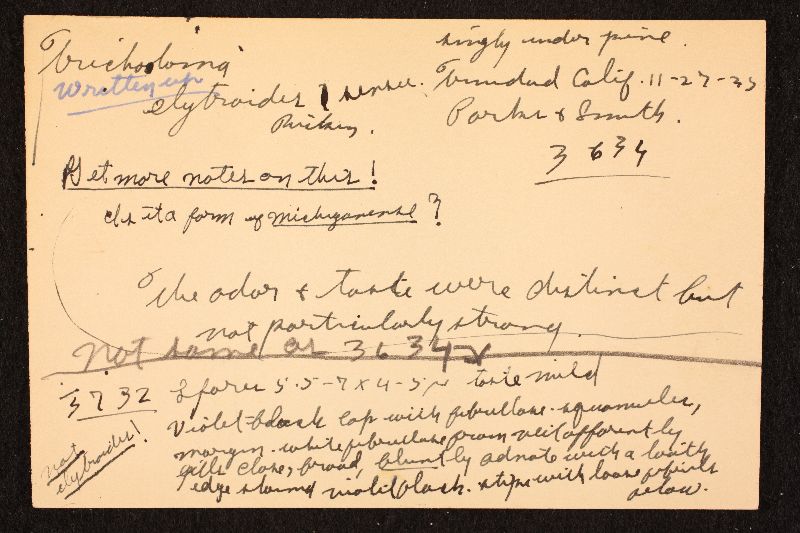 Tricholoma
Written up
elytroides sensu.
Rickens.
singly under pine.
Trinidad Calif. 11-27-35
Parks & Smith.
3634
Get more notes on this!
Is it a form of michiganense?
The odor & taste were distinct but
not particularly strong.
not same as 3634
3732 Spores 5.5-7 x 4-5 μ taste mild
Violet-black cap with fibrillose-squamules,
margin white fibrillose from veil apparently
gills close, broad, bluntly adnate with a
edge stained violet black. stipe with loose fibrils
below.
not
elytroides!